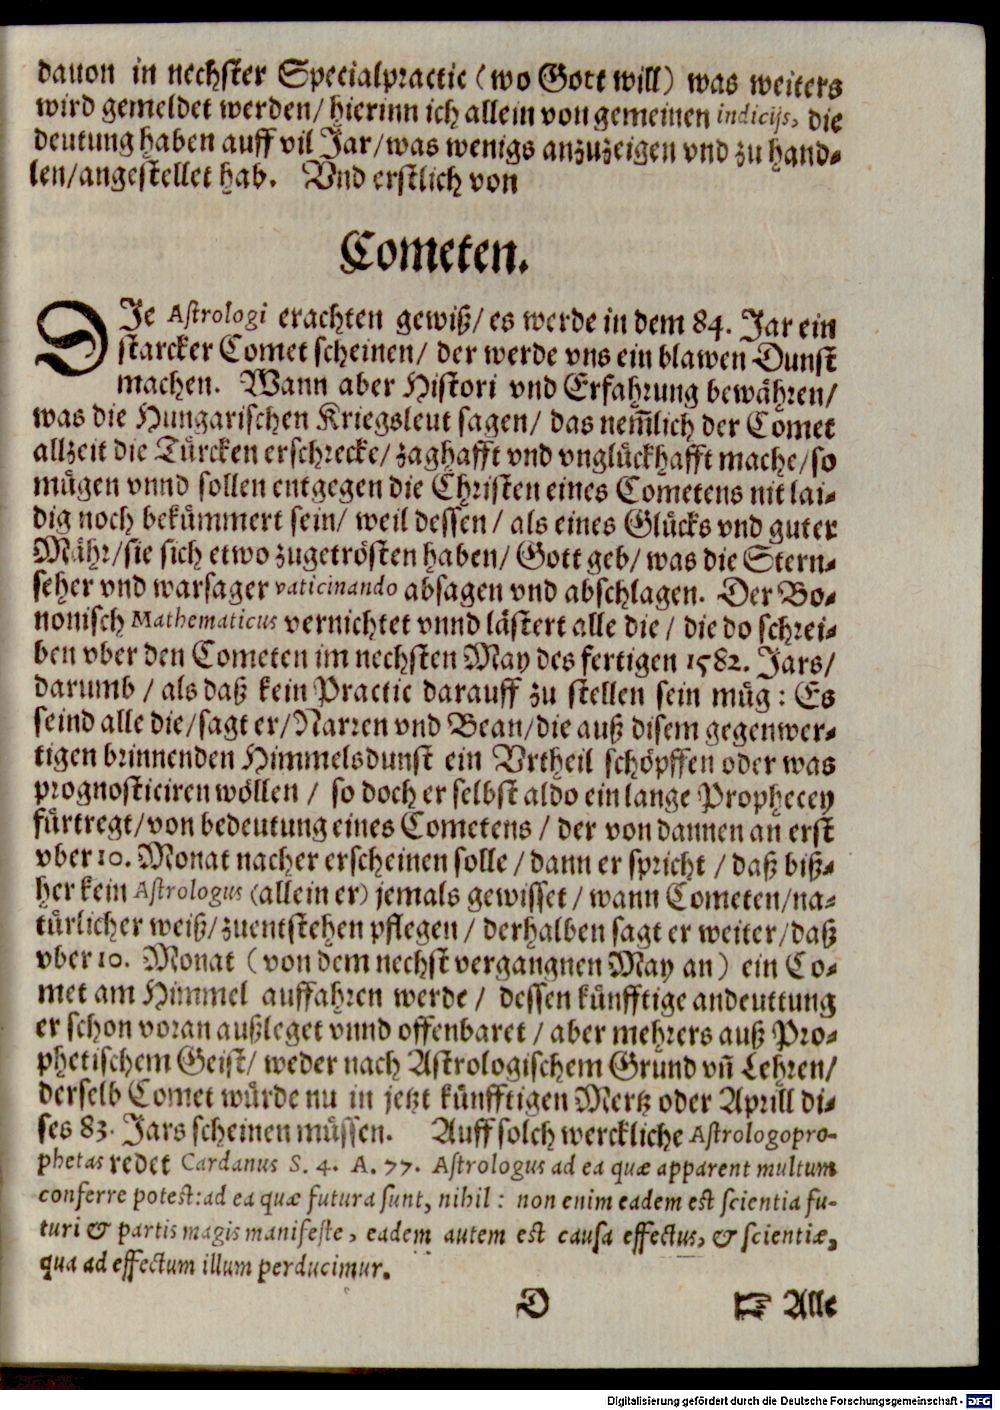 dauon in nechster Specialpractic (wo Gott will) was weiters
wird gemeldet werden/ hierinn ich allein von gemeinen indicijs, die
deutung haben auff vil Jar/ was wenigs anzuzeigen vnd zu hand-
len/ angestellet hab. Vnd erstlich von
Cometen.
DIe Astrologi erachten gewiß/ es werde in dem 84. Jar ein
starcker Comet scheinen/ der werde vns ein blawen Dunst
machen. Wann aber Histori vnd Erfahrung bewähren/
was die Hungarischen Kriegsleut sagen/ das nem̃lich der Comet
allzeit die Türcken erschrecke/ zaghafft vnd vnglückhafft mache/ so
mügen vnnd sollen entgegen die Christen eines Cometens nit lai-
dig noch bekümmert sein/ weil dessen/ als eines Glücks vnd guter
Mähr/ sie sich etwo zugetrösten haben/ Gott geb/ was die Stern-
seher vnd warsager vaticinando absagen vnd abschlagen. Der Bo-
nonisch Mathematicus vernichtet vnnd lästert alle die/ die do schrei-
ben vber den Cometen im nechsten May des fertigen 1582. Jars/
darumb/ als daß kein Practic darauff zu stellen sein müg: Es
seind alle die/ sagt er/ Narren vnd Bean/ die auß disem gegenwer-
tigen brinnenden Himmelsdunst ein Vrtheil schöpffen oder was
prognosticiren wöllen/ so doch er selbst aldo ein lange Prophecey
fürtregt/ von bedeutung eines Cometens/ der von dannen an erst
vber 10. Monat nacher erscheinen solle/ dann er spricht/ daß biß-
her kein Astrologus (allein er) jemals gewisset/ wann Cometen/ na-
türlicher weiß/ zuentstehen pflegen/ derhalben sagt er weiter/ daß
vber 10. Monat (von dem nechst vergangnen May an) ein Co-
met am Himmel auffahren werde/ dessen künfftige andeuttung
er schon voran außleget vnnd offenbaret/ aber mehrers auß Pro-
phetischem Geist/ weder nach Astrologischem Grund vñ Lehren/
derselb Comet würde nu in jetzt künfftigen Mertz oder Aprill di-
ses 83. Jars scheinen müssen. Auff solch werckliche Astrologopro-
phetas redet Cardanus S. 4. A. 77. Astrologus ad ea quæ apparent multum
conferre potest: ad ea quæ futura sunt, nihil: non enim eadem est scientia fu-
turi & partis magis manifeste, eadem autem est causa effectus, & scientiæ,
qua ad effectum illum perducimur.
D ☞ Alle
Digitalisierung gefördert durch die Deutsche Forschungsgemeinschaft - DFG